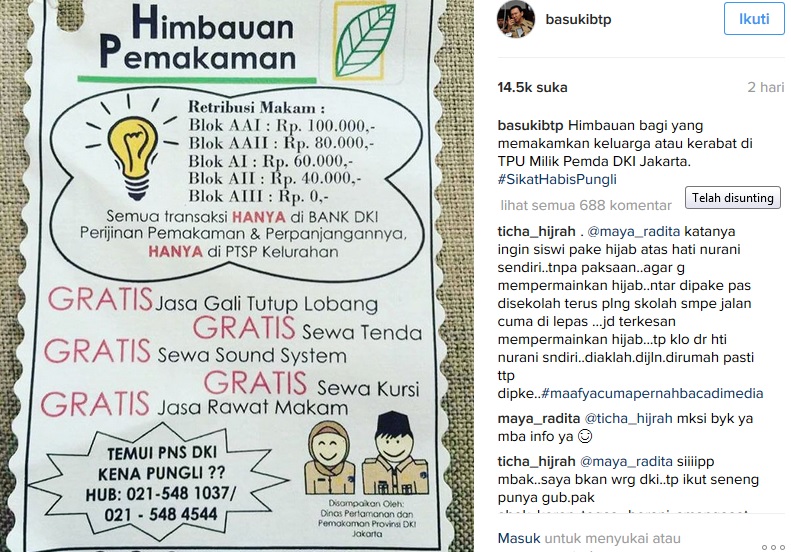 Himbauan
Pemakaman
Retribusi Makam :
Blok AAI : Rp. 100.000,-
Blok AAII : Rp. 80.000,-
Blok AI : Rp. 60.000,-
Blok AII : Rp. 40.000,-
Blok AIII : Rp. 0,-
Semua transaksi HANYA di BANK DKI
Perijinan Pemakaman & Perpanjangannya,
HANYA di PTSP Kelurahan
GRATIS Jasa Gali Tutup Lobang
GRATIS Sewa Tenda
GRATIS Sewa Sound System
GRATIS Sewa Kursi
GRATIS Jasa Rawat Makam
TEMUI PNS DKI
KENA PUNGLI ??
HUB: 021-548 1037/
021 - 548 4544
Disampaikan Oleh:
Dinas Pertamanan dan
Pemakaman Provinsi DKI
Jakarta
basukibtp
Ikuti
14.5k suka
2 hari
basukibtp Himbauan bagi yang
memakamkan keluarga atau kerabat di
TPU Milik Pemda DKI Jakarta.
#SikatHabisPungli
Telah disunting
lihat semua 688 komentar
ticha_hijrah . @maya_radita katanya
ingin siswi pake hijab atas hati nurani
sendiri..tnpa paksaan..agar g
mempermainkan hijab..ntar dipake pas
disekolah terus plng skolah smpe jalan
cuma di lepas ...jd terkesan
mempermainkan hijab...tp klo dr hti
nurani sndiri..diaklah.dijln.dirumah pasti
ttp
dipke..#maafyacumapernahbacadimedia
maya_radita @ticha_hijrah mksi byk ya
mba info ya ☺
ticha_hijrah @maya_radita siiiipp
mbak...saya bkan wrg dki..tp ikut seneng
punya gub.pak
Masuk untuk menyukai atau